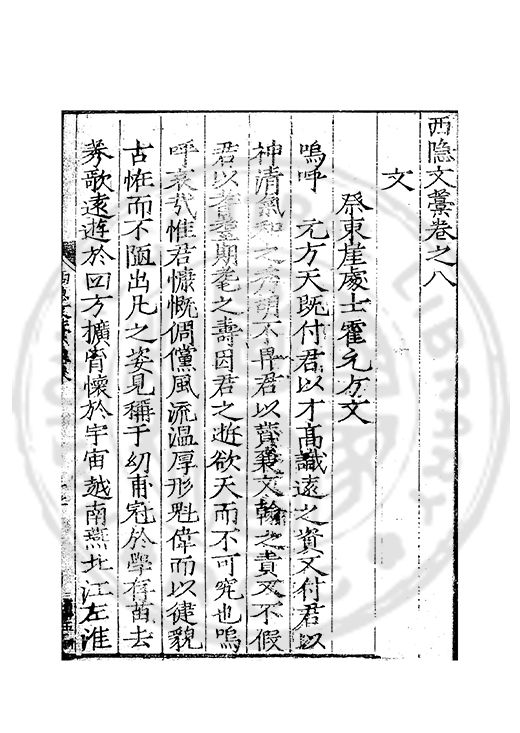 西隐文稾卷之八
文
祭東崖處士霍元方文
嗚呼元方天既付君以才高識遠之資又付君以
神清氣和之秀胡不畀君以黃稾文翰之貴又不假
君以耆耋期耄之壽因君之逝欲天而不可究也嗚
呼哀哉惟君慷慨倜儻風流溫厚形魁偉而以徤貌
古恠而不陋出凡之姿見稱于幼甫冠於學存苗去
莠歌遠遊於四方擴胷懷於宇宙越南燕北江左淮